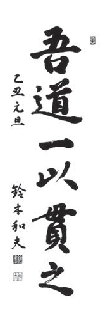 吾道一以貫之
乙丑元旦
鈴木和夫